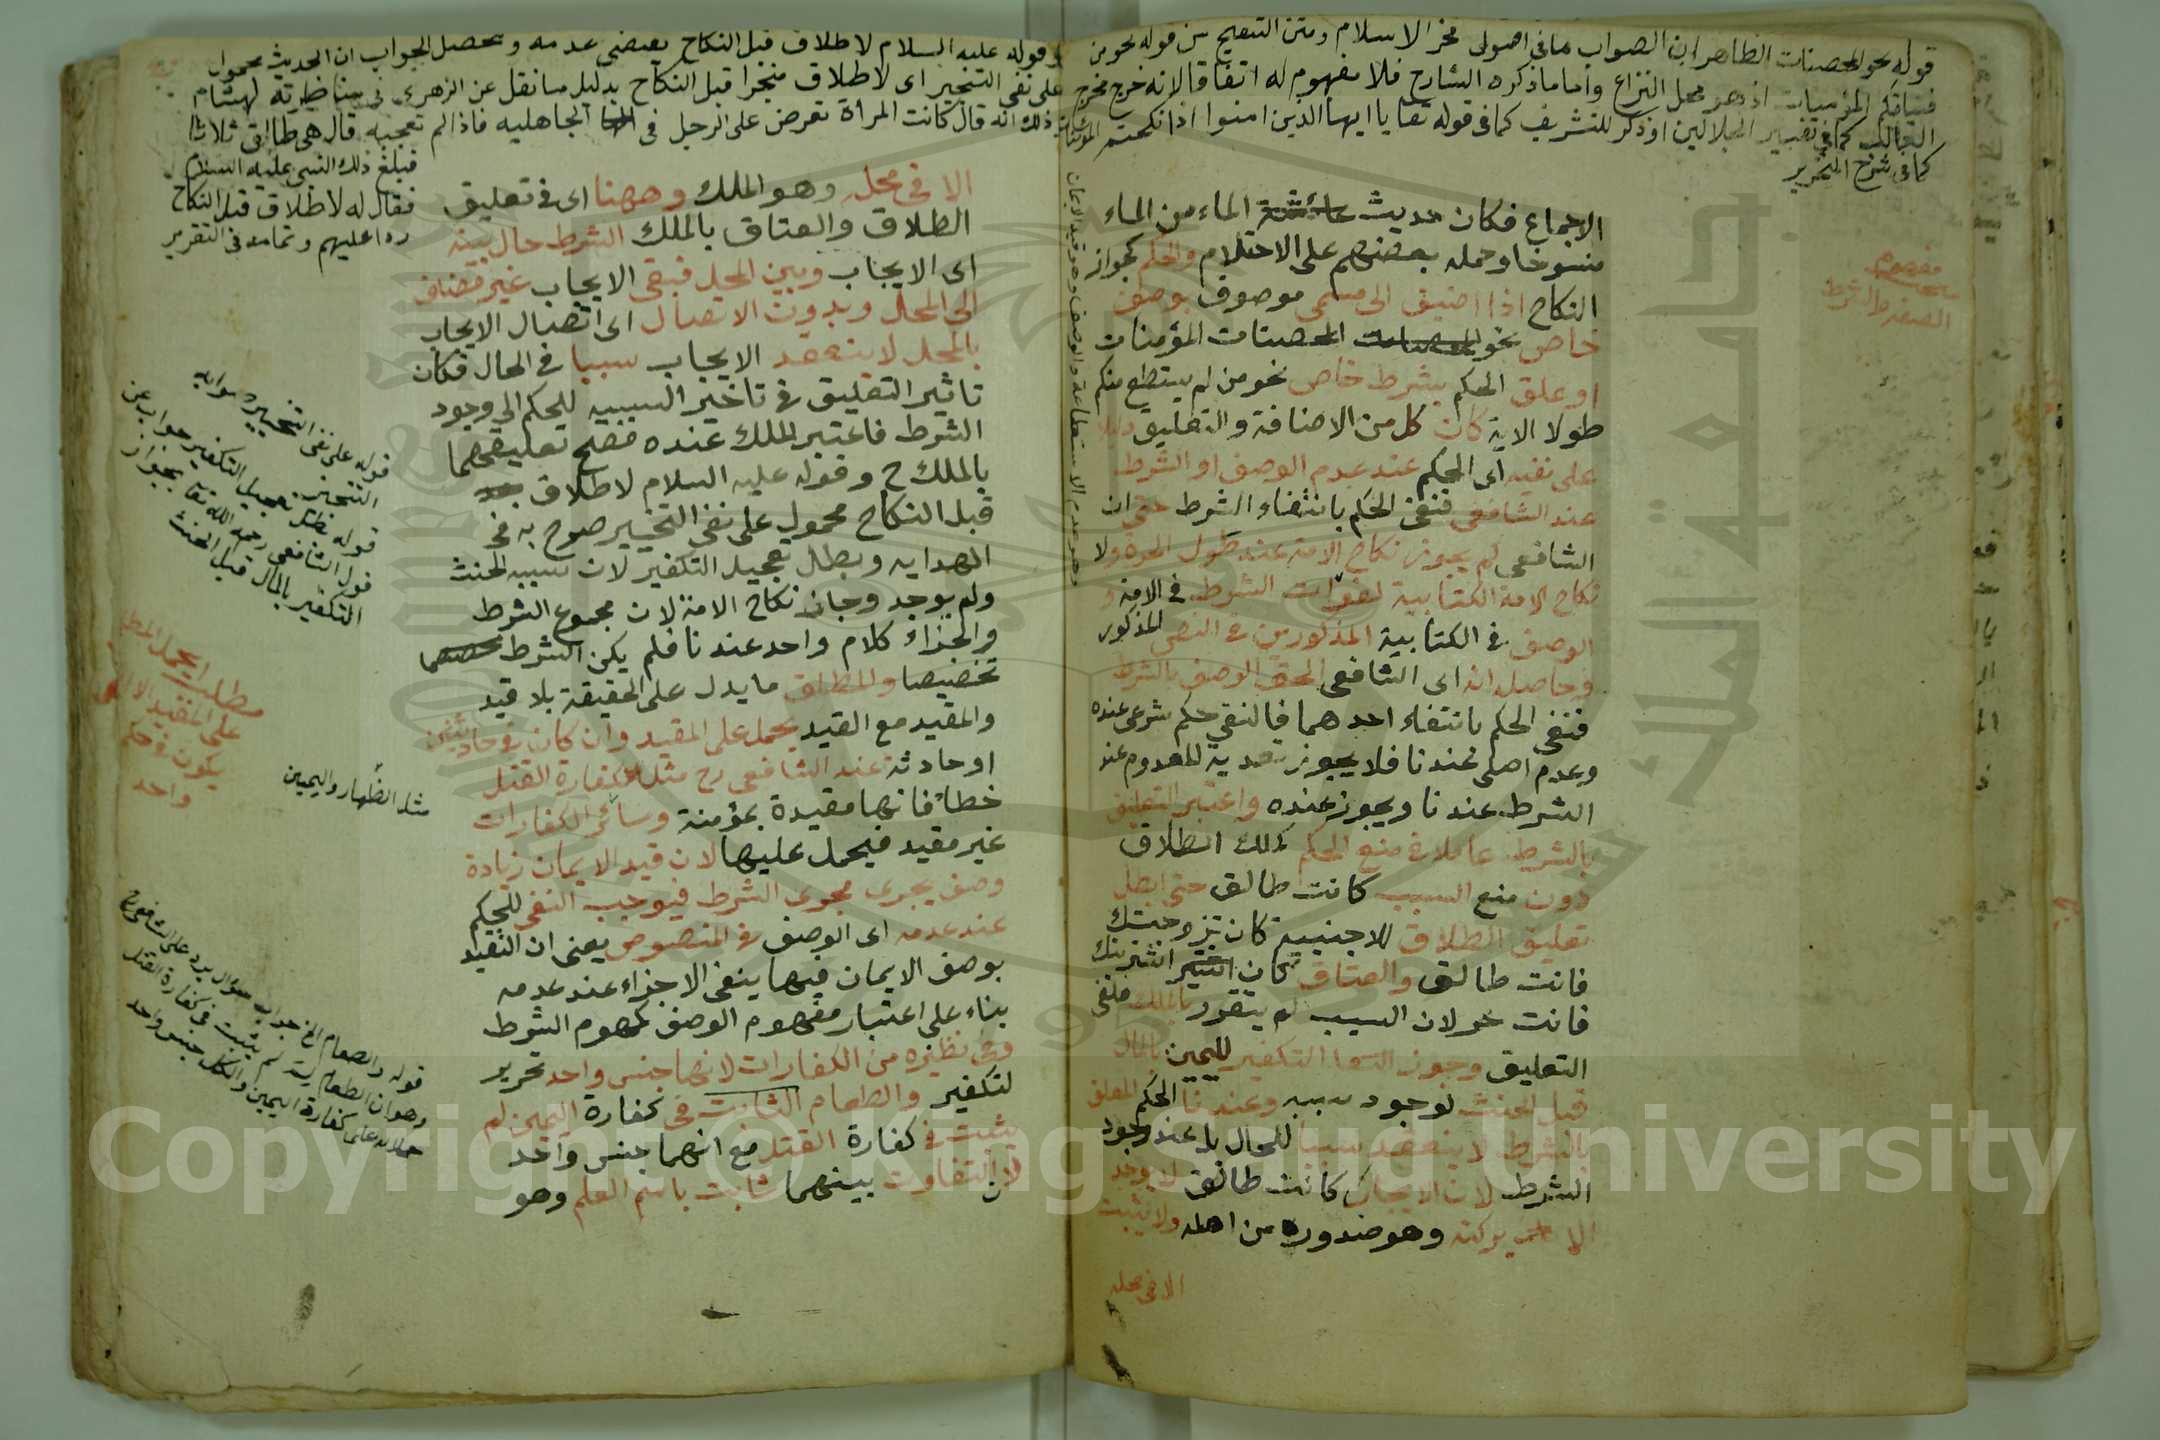 قوله نحو المحصنات الظاهر ان الصواب ما في اصولي فخر الاسلام ومتن التنقيح من قوله نحو من
فتياتكم المؤمنات اذ هو محل النزاع واما ما ذكره الشارح فلا مفهوم له اتفاقا لانه خرج مخرج
الغالب كما في تفسير الجلالين او ذكر للتشريف كما في قوله تعا يا ايها الذين امنوا اذا نكحتم المؤمنات
كما في شرح التحرير
الاجماع فكان حديث عائشة الماء من الماء
منسوخا وحمله بعضهم على الاحتلام والحكم كجواز
النكاح اذا اضيف الى مسمى موصوف بوصف
خاص نحو المحصنات المؤمنات
او علق الحكم بشرط خاص نحو من لم يستطع منكم
طولا الاية كان كل من الاضافة والتعليق دليلا
على نفيه اى الحكم عند عدم الوصف او الشرط
عند الشافعى فنفى الحكم بانتفاء الشرط حتى ان
الشافعى لم يجوز نكاح الامة عند طول الحرة ولا
نكاح الامة الكتابية لفوات الشرط في الامة و
الوصف في الكتابية المذكورين في النص المذكور
وحاصله انه اى الشافعى الحق الوصف بالشرط
فنفى الحكم بانتفاء احدهما فالنفى حكم شرعى عنده
وعدم اصلى عندنا فلا يجوز تعدية المعدوم عند
الشرط عندنا ويجوز عنده واعتبر التعليق
بالشرط عاملا في منع الحكم كذلك الطلاق
دون منع السبب كانت طالق حتى ابطل
تعليق الطلاق للاجنبية كان تزوجتك
فانت طالق والعتاق كان اشتريتك
فانت حر لان السبب لم يتقرر بالملك فلغى
التعليق وجوز التكفير لليمين بالمال
قبل الحنث لوجود سببه وعندنا الحكم المعلق
بالشرط لا ينعقد سببا للحال بل عند وجود
الشرط لان الايجاب كانت طالق لا يوجد
الا بركنه وهو صدوره من اهله ولا يثبت
الا في محله
مفهوم
الصفة والشرط
وقوله عليه السلام لا طلاق قبل النكاح يقتضى عدمه ومحصل الجواب ان الحديث محمول
على نفى التنجيز اى لا طلاق منجزا قبل النكاح بدليل ما نقل عن الزهرى في مناظرته لهشام
ذلك انه قال كانت المرأة تعرض على الرجل في الجاهلية فاذا لم تعجبه قال هى طالق ثلاثا
فبلغ ذلك النبى عليه السلام
فقال له لا طلاق قبل النكاح
ردا عليهم وتمامه في التقرير
الا في محله وهو الملك وههنا اى في تعليق
الطلاق والعتاق بالملك الشرط حال بينه
اى الايجاب وبين المحل فبقى الايجاب غير مضاف
الى المحل وبدون الاتصال اى اتصال الايجاب
بالمحل لا ينعقد الايجاب سببا في الحال فكان
تاثير التعليق في تاخير السببية للحكم الى وجود
الشرط فاعتبر الملك عنده فصح تعليقهما
بالملك ح وقوله عليه السلام لا طلاق
قبل النكاح محمول على نفى التنجيز صرح به في
الهداية وبطل تعجيل التكفير لان سببه الحنث
ولم يوجد وجاز نكاح الامة لان مجموع الشرط
والجزاء كلام واحد عندنا فلم يكن الشرط
تخصيصا والمطلق ما يدل على الحقيقة بلا قيد
والمقيد مع القيد يحمل على المقيد وان كان في حادثتين
او حادثة عند الشافعى رح مثل كفارة القتل
خطأ فانها مقيدة بمؤمنة وسائر الكفارات
غير مقيد فيحمل عليها لان قيد الايمان زيادة
وصف يجرى مجرى الشرط فيوجب النفى للحكم
عند عدمه اى الوصف في المنصوص يعنى ان التقييد
بوصف الايمان فيها ينفى الاجزاء عند عدمه
بناء على اعتبار مفهوم الوصف كمفهوم الشرط
وفى نظيره من الكفارات لانها جنس واحد تحرير
لتكفير والطعام الثابت في كفارة اليمين لم
يثبت في كفارة القتل مع انهما جنس واحد
لان التفاوت بينهما ثابت باسم العلم وهو
قوله على نفى التنجيز
قوله وبطل تعجيل التكفير جواب عن
قول الشافعى رحمه الله تعا بجواز
التكفير بالمال قبل الحنث
مطلب يحمل المطلق
على المقيد
يكون في حكم
واحد
مثل الظهار واليمين
قوله والطعام الخ جواب سؤال يرد على الشافعى رح
وهو ان الطعام لم يثبت في كفارة القتل
حملا له على كفارة اليمين والكل جنس واحد
Copyright © King Saud University
جامعة الملك سعود
1957